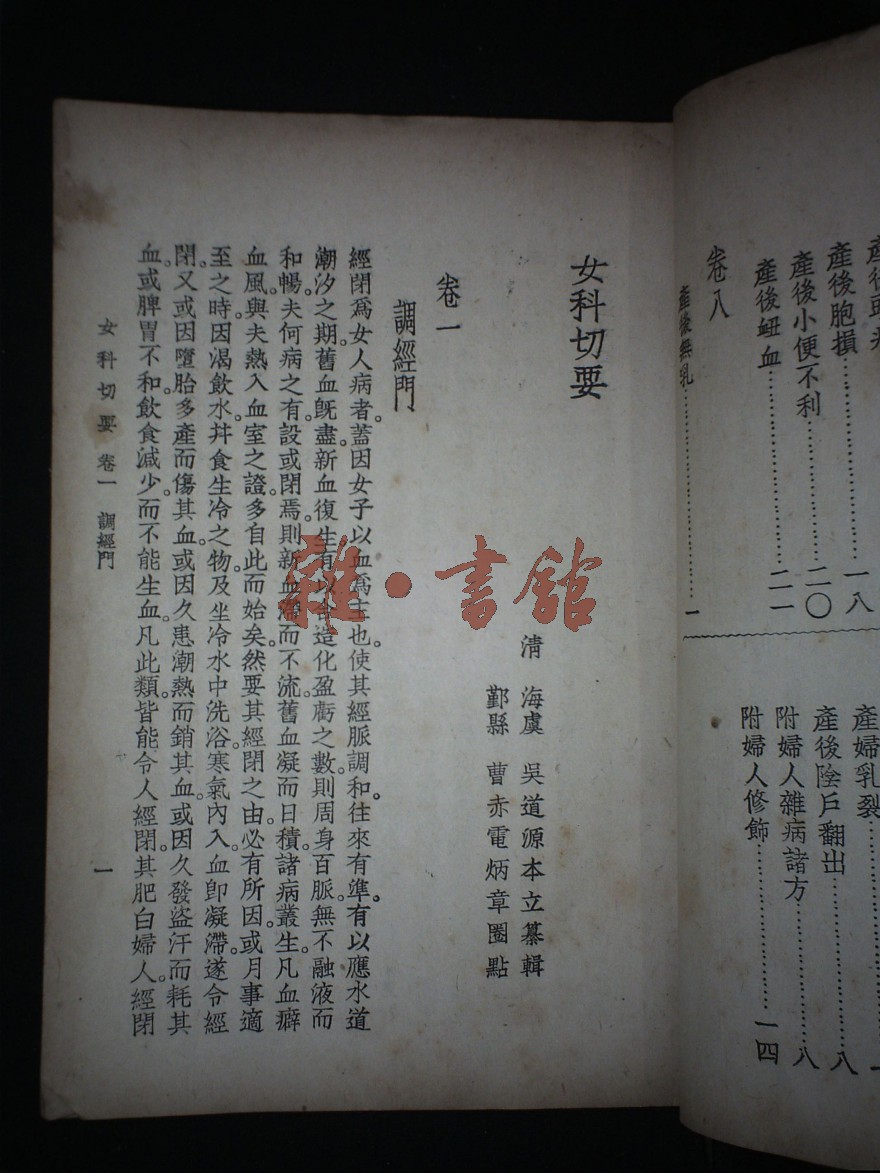 產後胞損……一八
產後小便不利……二〇
產後衄血……二一
卷八
產後無乳……一
產婦乳裂
產後陰戶翻出……八
附婦人雜病諸方……八
附婦人修飾……一四
女科切要
清 海虞 吳道源本立纂輯
鄞縣 曹赤電炳章圈點
卷一
調經門
經閉爲女人病者。蓋因女子以血爲主也。使其經脈調和。往來有準。有以應水道
潮汐之期。舊血旣盡。新血復生。有以合造化盈虧之數。則周身百脈無不融液而
和暢。夫何病之有。設或閉焉。則新血滯而不流。舊血凝而日積。諸病叢生。凡血癖
血風。與夫熱入血室之證。多自此而始矣。然要其經閉之由。必有所因。或月事適
至之時。因渴飲水。幷食生冷之物。及坐冷水中洗浴。寒氣內入。血卽凝滯。遂令經
閉。又或因墮胎多產而傷其血。或因久患潮熱而銷其血。或因久發盜汗而耗其
血。或脾胃不和。飲食減少。而不能生血。凡此類皆能令人經閉。其肥白婦人經閉
女科切要 卷一 調經門
一
雜·書館